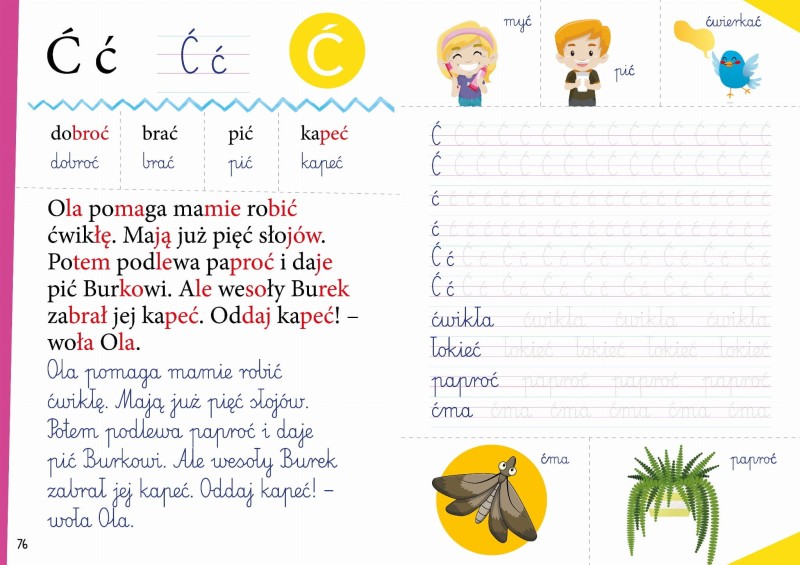 Ć ć Ć ć Ć
dobroć brać pić kapeć
dobroć brać pić kapeć
Ola pomaga mamie robić
ćwikłę. Mają już pięć słojów.
Potem podlewa paproć i daje
pić Burkowi. Ale wesoły Burek
zabrał jej kapeć. Oddaj kapeć! –
woła Ola.
Ola pomaga mamie robić
ćwikłę. Mają już pięć słojów.
Potem podlewa paproć i daje
pić Burkowi. Ale wesoły Burek
zabrał jej kapeć. Oddaj kapeć! –
woła Ola.
76
myć
pić
ćwierkać
Ć Ć Ć Ć Ć Ć Ć Ć Ć Ć Ć Ć Ć Ć Ć Ć
Ć Ć Ć Ć Ć Ć Ć Ć Ć Ć Ć Ć Ć Ć Ć Ć
ć ć ć ć ć ć ć ć ć ć ć ć ć ć ć ć
ć ć ć ć ć ć ć ć ć ć ć ć ć ć ć ć
Ć ć Ć ć Ć ć Ć ć Ć ć Ć ć Ć ć Ć ć
Ć ć Ć ć Ć ć Ć ć Ć ć Ć ć Ć ć Ć ć
ćwikła ćwikła ćwikła ćwikła
łokieć łokieć łokieć łokieć łokieć
paproć paproć paproć paproć
ćma ćma ćma ćma ćma ćma
ćma
paproć